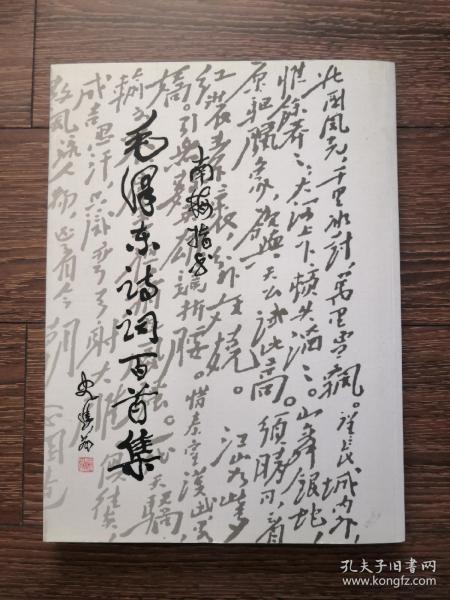 北国风光，千里冰封，万里雪飘。望长城内外，
惟余莽莽；大河上下，顿失滔滔。山舞银蛇，
原驰蜡象，欲与天公试比高。须晴日，看
红装素裹，分外妖娆。江山如此多
娇。引无数英雄竞折腰。惜秦皇汉武，
输文采
天骄
成吉思汗，只识弯弓射大雕。俱往矣，
数风流人物，还看今朝
南梅指书
毛泽东诗词百首集
孔夫子旧书网
www.kongfz.com